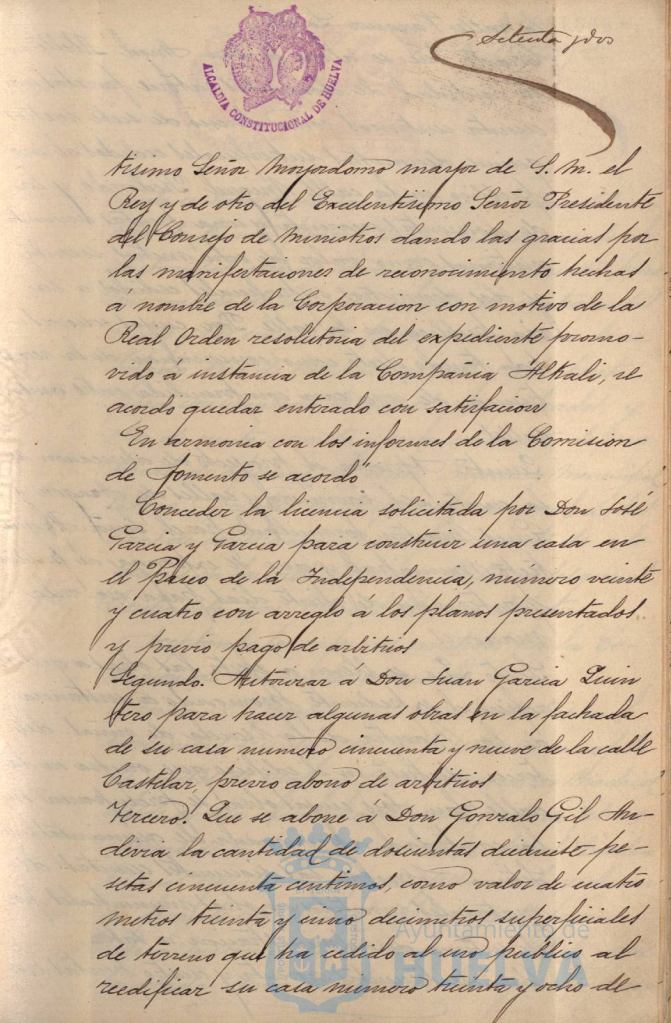 Setenta y dos
ALCALDIA CONSTITUCIONAL DE HUELVA
tisimo Señor Mayordomo mayor de S. M. el
Rey y de otro del Excelentisimo Señor Presidente
del Consejo de Ministros dando las gracias por
las manifestaciones de reconocimiento hechas
á nombre de la Corporacion con motivo de la
Real Orden resolutoria del expediente promo-
vido á instancia de la Compañia Alkali, se
acordo quedar enterado con satisfacion
En armonia con los informes de la Comision
de Fomento se acordó
Conceder la licencia solicitada por Don José
Garcia y Garcia para construir una casa en
el Paseo de la Independencia, número veinte
y cuatro con arreglo á los planos presentados
y previo pago de arbitrios
Segundo. Autorizar á Don Juan Garcia Quin
tero para hacer algunas obras en la fachada
de su casa numero cincuenta y nueve de la calle
Castelar, previo abono de arbitrios
Tercero. Que se abone á Don Gonzalo Gil An-
devia la cantidad de doscientas diecisiete pe-
setas cincuenta centimos, como valor de cuatro
metros treinta y cinco decimetros superficiales
de terreno que ha cedido al uso publico al
reedificar su casa número treinta y ocho de
Ayuntamiento de
HUELVA